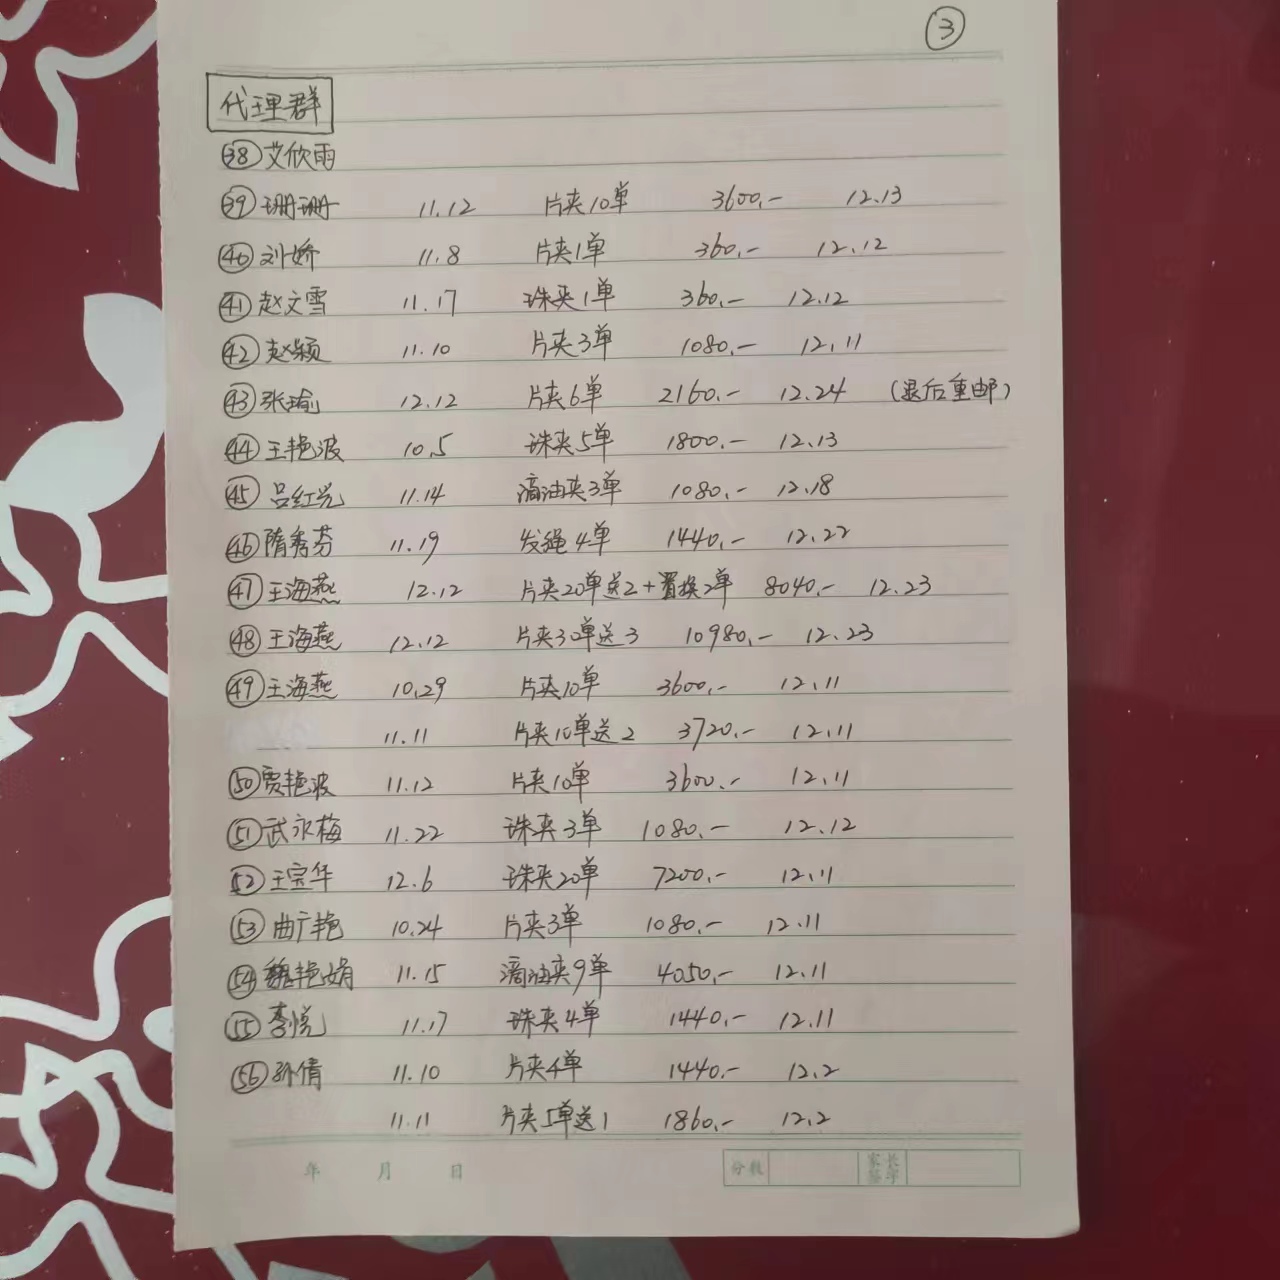 ③
代理群
㊳艾欣雨
㊴珊珊 11.12 片夹10单 3600.- 12.13
㊵刘娇 11.8 片夹1单 360.- 12.12
㊶赵文雪 11.17 珠夹1单 360.- 12.12
㊷赵颖 11.10 片夹3单 1080.- 12.11
㊸张瑜 12.12 片夹6单 2160.- 12.24 (退后重邮)
㊹王艳波 10.5 珠夹5单 1800.- 12.13
㊺吕红光 11.14 滴油夹3单 1080.- 12.18
㊻隋秀芬 11.19 发绳4单 1440.- 12.22
㊼王海燕 12.12 片夹20单送2+置换2单 8040.- 12.23
㊽王海燕 12.12 片夹30单送3 10980.- 12.23
㊾王海燕 10.29 片夹10单 3600.- 12.11
11.11 片夹10单送2 3720.- 12.11
㊿贾艳波 11.12 片夹10单 3600.- 12.11
(51)武永梅 11.22 珠夹3单 1080.- 12.12
(52)王宝华 12.6 珠夹20单 7200.- 12.11
(53)曲广艳 10.24 片夹3单 1080.- 12.11
(54)魏艳娟 11.15 滴油夹9单 4050.- 12.11
(55)李悦 11.17 珠夹4单 1440.- 12.11
(56)孙倩 11.10 片夹4单 1440.- 12.2
11.11 片夹5单送1 1860.- 12.2
年 月 日 分数 家长签字